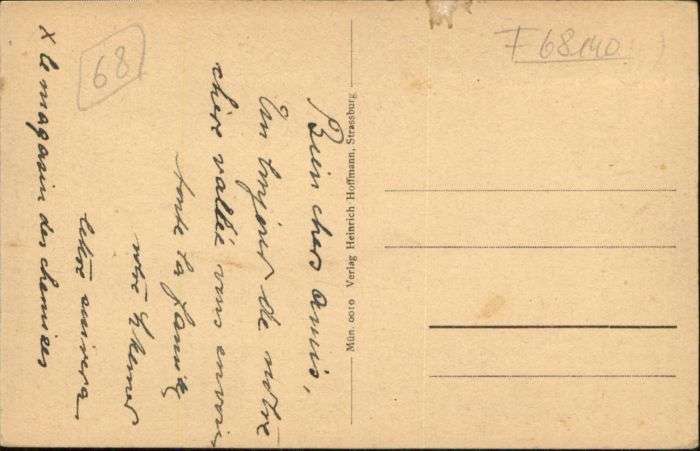 Bien chers amis,
Un bonjour de notre
chère vallée vous envoie
toute la famille
votre
lettre suivra
x le magasin des chemises
Mün. 0010 Verlag Heinrich Hoffmann, Strassburg
68
F 68140